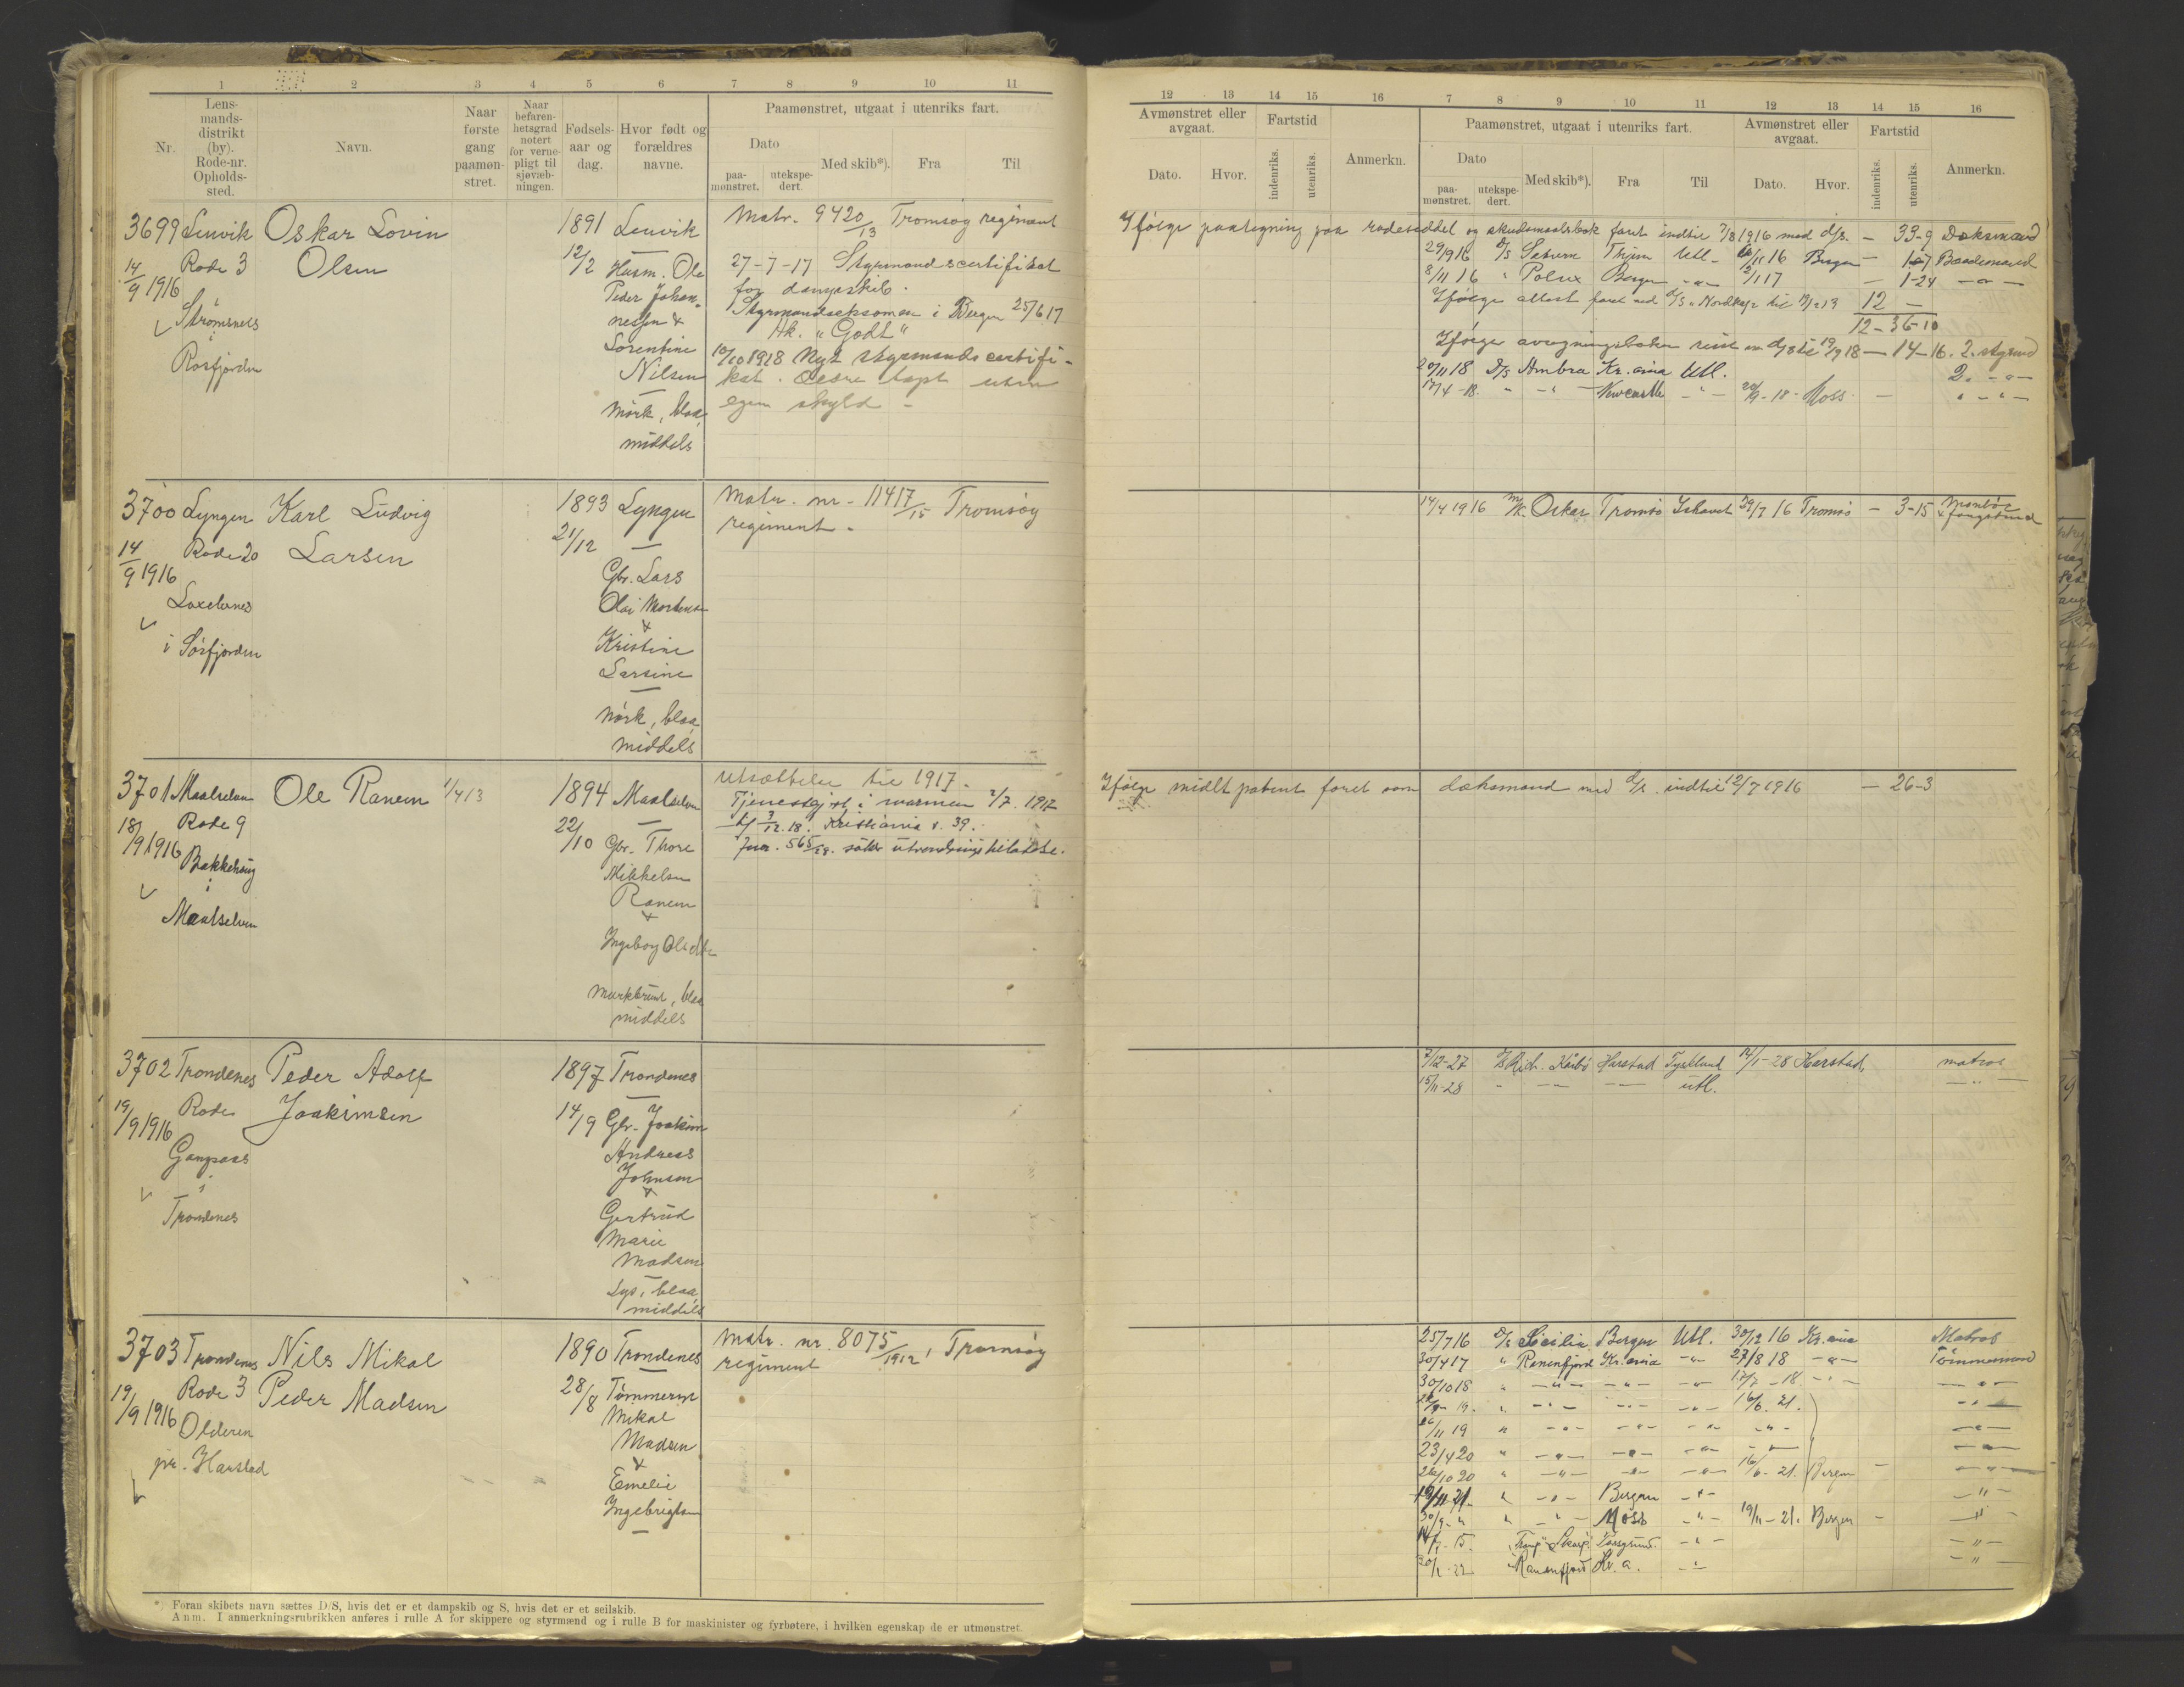 1 2 3 4 5 6 7 8 9 10 11
Nr.
Lens-
mands-
distrikt
(by).
Rode-nr.
Opholds-
sted.
Navn.
Naar
første
gang
paamøn-
stret.
Naar
befaren-
hetsgrad
notert
for verne-
pligt til
sjøvæb-
ningen.
Fødsels-
aar og
dag.
Hvor født og
forældres
navne.
Paamønstret, utgaat i utenriks fart.
Dato
paa-
mønstret.
utekspe-
dert.
Med skib*).
Fra
Til
3699 Lenvik Oskar Lovin 1891 Lenvik
14/9 1916 Rode 3 Olsen 12/2 Husm. Ole
Strømsnes Peder Johan-
i nessen &
Rosfjorden Lorentine
Nilsen
Mørk, blaa,
middels
Matr. 9420/13 Tromsøy regiment
27-7-17 Styrmandscertifikat
for dampskib.
Styrmandseksamen i Bergen 25/6 17
Hk. "Godt"
10/10 1918 Nyt styrmandscertifi-
kat. Ældre tapt uten
egen skyld -
3700 Lyngen Karl Ludvig 1893 Lyngen
14/9 1916 Rode 20 Larsen 21/12
Gbr. Lars
Olai Mortensen
&
i Sørfjorden Kristine
Larsine
Mørk, blaa
middels
Matr. nr. 11417/15 Tromsøy
regiment.
3701 Maalselven Ole Ranem 1/4 13 1894 Maalselven
18/9 1916 Rode 9 22/10 Gbr. Thore
Bakkehaug Mikkelsen
i Ranem
Maalselven &
Ingeborg Olsdtr
Mørkbrun, blaa
middels
Utsættelse til 1917.
Tjenestgjort i marinen 2/7. 1917
3/12.18. Kristiania s. 39.
Jnr. 565/28. søkt utvandringstilladelse.
3702 Trondenes Peder Adolf 1897 Trondenes
19/9 1916 Rode Joakimsen 14/9 Gbr. Joakim
Gangsaas Andreas
i Johnsen
Trondenes &
Gertrud
Marie
Madsen
Lys, blaa
middels
3703 Trondenes Nils Mikal 1890 Trondenes
19/9 1916 Rode 3 Peder Madsen 28/8 Tømmerm
Olderen Mikal
pr. Harstad Madsen
&
Emelie
Ingebrigtsen
Matr. nr. 8075/1912, Tromsøy
regiment
*) Foran skibets navn sættes D/S, hvis det er et dampskib og S, hvis det er et seilskib.
Anm. I anmerkningsrubrikken anføres i rulle A for skippere og styrmænd og i rulle B for maskinister og fyrbøtere, i hvilken egenskap de er utmønstret.
12 13 14 15 16 7 8 9 10 11 12 13 14 15 16
Avmønstret eller
avgaat.
Dato. Hvor.
Fartstid
indenriks.
utenriks.
Anmerkn.
Paamønstret, utgaat i utenriks fart.
Dato
paa-
mønstret.
utekspe-
dert.
Med skib*).
Fra
Til
Avmønstret eller
avgaat.
Dato. Hvor.
Fartstid
indenriks.
utenriks.
Anmerkn.
Ifølge paategning paa rodeseddel og skudsmaalsbok faret indtil 7/8 1916 med d/s. - 33-9 Dæksmand
29/9 16 D/S Saturn Utl. 11 16 Bergen - Baadsmand
8/11 16 " Polux Bergen -"- 2/1 17 - 1-24 -"-
Ifølge attest faret med d/s "Nordkap" til 12 -
12-36-10
Ifølge avregningsboken reist m d/s til 19/9 18 - 14-16. 2. styrmd
20/11 18 D/S Ambra Kr.ania Utl. 2. -"-
17/4-18. " -"- Newcastle -"- 20/9-18- Moss - " -"-
14/4 1916 M/K. Oskar Tromsø Ishavet 29/7 16 Tromsø - 3-15
& fangstmd
Ifølge midlt patent faret som dæksmand med d/s. indtil 12/7 1916 - 26-3
7/12-27 Rich. Kårbø Harstad Tyskland 14/1-28 Harstad matros
15/11-28 " -"- -"- Utl. -"-
25/7 16 D/S Sicilia Bergen Utl. 30/12 16 Kr.ania Matros
30/4 17 " Ranenfjord Kr.ania -"- 27/8 18 -"- Tømmermand
30/10 18 " -"- -"- -"- 17/7-18. -"- -"-
19. " -"- -"- -"- 16/6. 21. -"-
26/11 19 " -"- -"- -"- -"- -"-
23/4 20 " -"- -"- -"- -"- -"-
26/10 20 " -"- -"- -"- 16/6-21. Bergen - -"-
19/11 21- " -"- Bergen -"- -"-
30/9-" " -"- Moss -"- 19/11-21. Bergen - -"-
Porsgrund. -"- -"-
22 " Ranenfjord Kr.a. -"- -"-